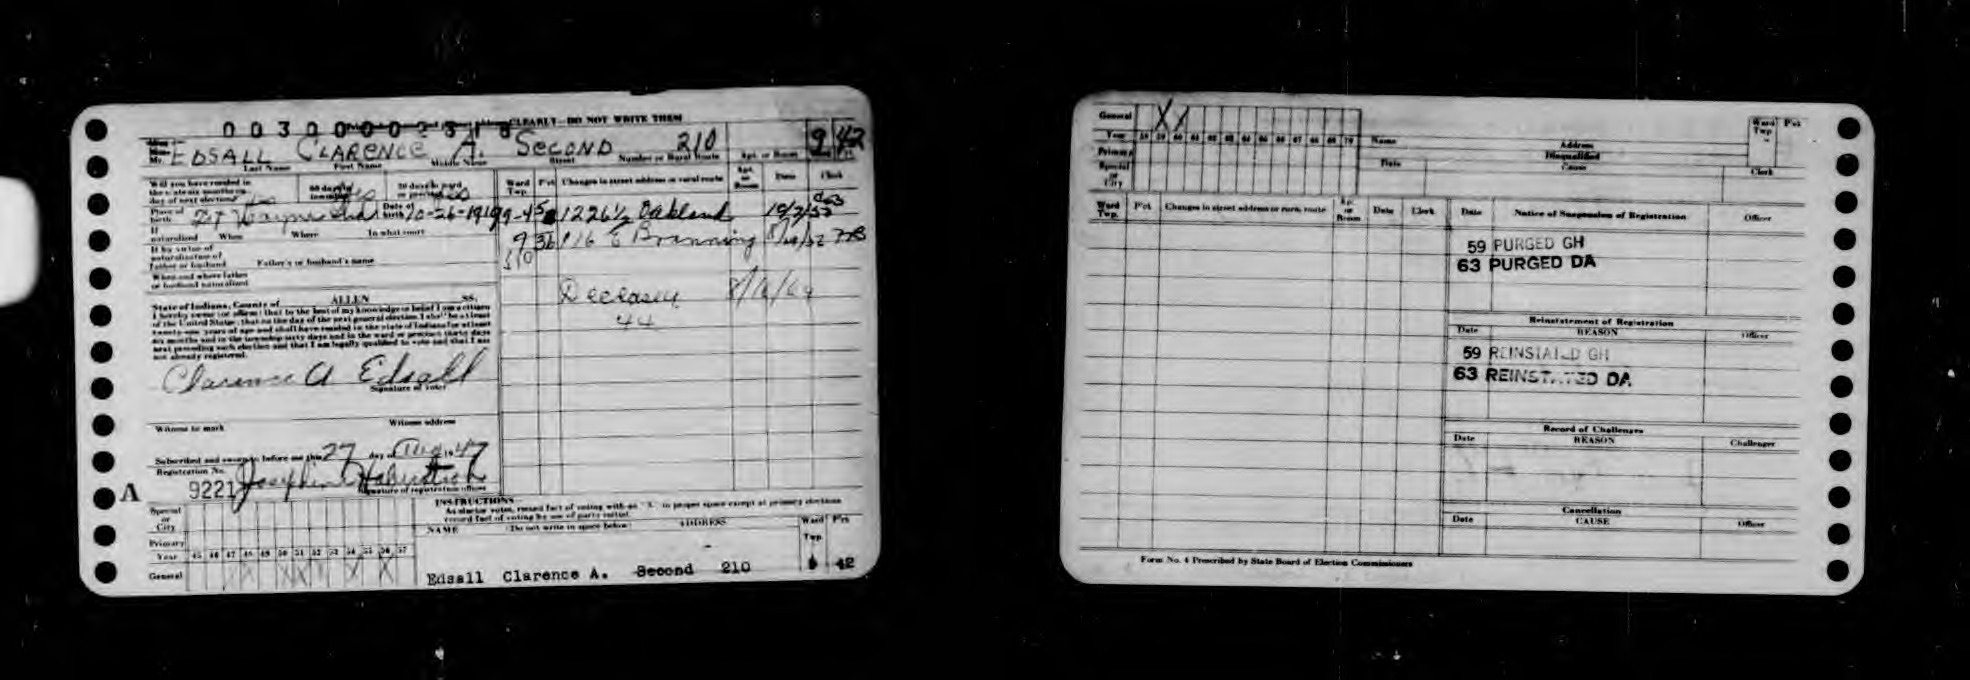 00300002318
CLEARLY—DO NOT WRITE THEM
Miss
Mrs.
Mr. EDSALL CLARENCE A. SECOND 210 9 42
Last Name First Name Middle Name Street Number or Rural Route Apt. or Room
Will you have resided in the state six months on day of next election? Yes 60 days in township Yes 30 days in ward or precinct Yes
Ward Twp. P'ct Changes in street address or rural route Apt. or Room Date Clerk
Place of birth Ft Wayne Ind Date of birth 10-26-1919
9-45 1226½ Oakland 10/2/53
9 36 916 E Branning
If naturalized When Where In what court
If by virtue of naturalization of father or husband Father's or husband's name
When and where father or husband naturalized
Deceased
44
State of Indiana, County of ALLEN SS.
I hereby swear (or affirm) that to the best of my knowledge or belief I am a citizen
of the United States; that on the day of the next general election I shall be at least
twenty-one years of age and shall have resided in the state of Indiana for at least
six months and in the township sixty days and in the ward or precinct thirty days
next preceding such election and that I am legally qualified to vote and that I am
not already registered.
Clarence A Edsall
Signature of voter
Witness to mark Witness address
Subscribed and sworn to before me this 27 day of Aug 1947
Registration No.
A 9221 Josephine
Signature of registration officer
INSTRUCTIONS
As elector votes, record fact of voting with an "X" in proper space except at primary elections
record fact of voting by use of party initial.
NAME (Do not write in space below) ADDRESS Ward Twp. P'ct
Special or City
Primary
Year 45 46 47 48 49 50 51 52 53 54 55 56 57
General X X X X X
Edsall Clarence A. Second 210 42
General X X
Year 58 59 60 61 62 63 64 65 66 67 68 69 70
Primary
Special or City
Name Address Ward Twp. P'ct
Disqualified
Date Cause Clerk
Ward Twp. P'ct Changes in street address or rural route Ap. or Room Date Clerk
Date Notice of Suspension of Registration Officer
59 PURGED GH
63 PURGED DA
Reinstatement of Registration
Date REASON Officer
59 REINSTATED GH
63 REINSTATED DA
Record of Challenges
Date REASON Challenger
Cancellation
Date CAUSE Officer
Form No. 4 Prescribed by State Board of Election Commissioners